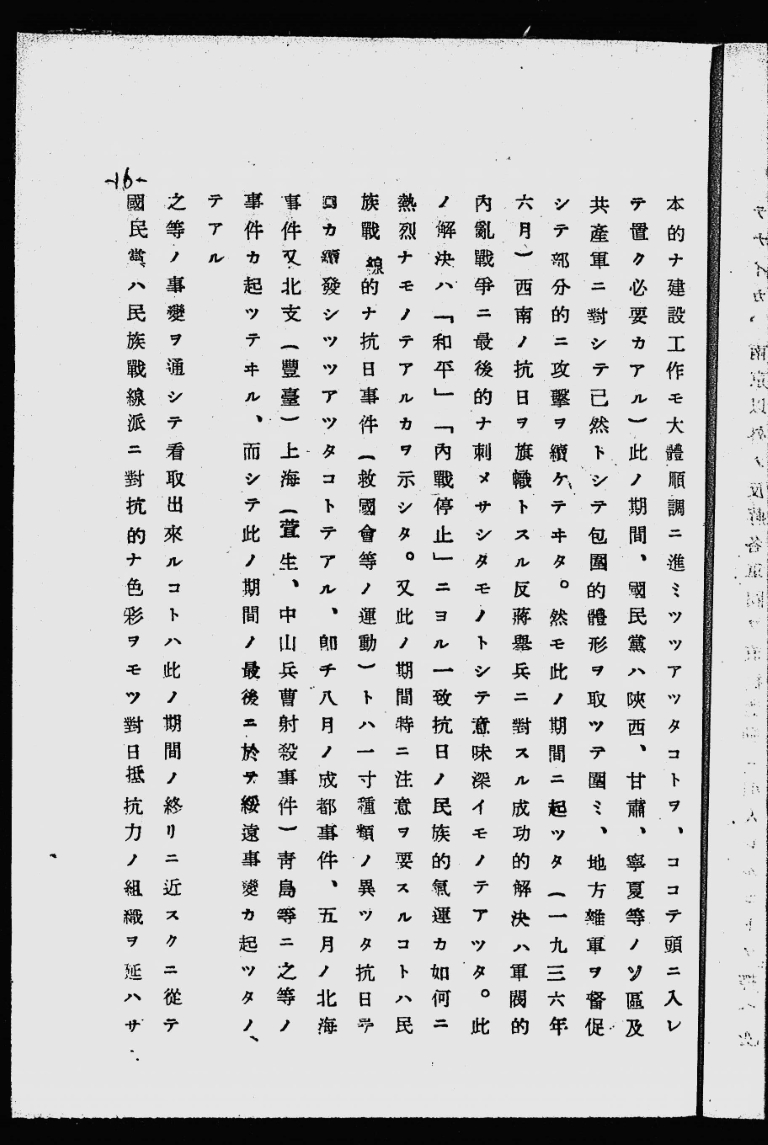 本的ナ建設工作モ大體順調ニ進ミツツアツタコトヲ、ココテ頭ニ入レ
テ置ク必要カアル)此ノ期間、國民黨ハ陝西、甘肅、寧夏等ノソ區及
共產軍ニ對シテ已然トシテ包圍的體形ヲ取ツテ圍ミ、地方雜軍ヲ督促
シテ部分的ニ攻擊ヲ續ケテヰタ。然モ此ノ期間ニ起ツタ(一九三六年
六月)西南ノ抗日ヲ旗幟トスル反蔣擧兵ニ對スル成功的解決ハ軍閥的
內亂戰爭ニ最後的ナ刺メサシタモノトシテ意味深イモノテアツタ。此
ノ解決ハ「和平」「內戰停止」ニヨル一致抗日ノ民族的氣運カ如何ニ
熱烈ナモノテアルカヲ示シタ。又此ノ期間特ニ注意ヲ要スルコトハ民
族戰線的ナ抗日事件(救國會等ノ運動)トハ一寸種類ノ異ツタ抗日テ
ロカ續發シツツアツタコトテアル、卽チ八月ノ成都事件、五月ノ北海
事件又北支(豐臺)上海(萱生、中山兵曹射殺事件)靑島等ニ之等ノ
事件カ起ツテヰル、而シテ此ノ期間ノ最後ニ於テ綏遠事變カ起ツタノ、
テアル
之等ノ事變ヲ通シテ看取出來ルコトハ此ノ期間ノ終リニ近スクニ從テ
國民黨ハ民族戰線派ニ對抗的ナ色彩ヲモツ對日抵抗力ノ組織ヲ延ハサ
-16-